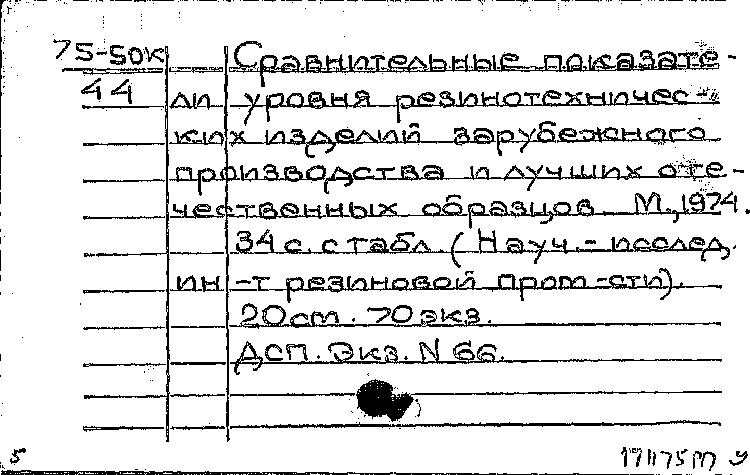 75-50к Сравнительные показате-
44 ли уровня резинотехничес-
ких изделий зарубежного
производства и лучших оте-
чественных образцов. М., 1974.
34 с. с табл. (Науч.-исслед.
ин-т резиновой пром-сти).
20 см. 70 экз.
ДСП. Экз. N 66.
5